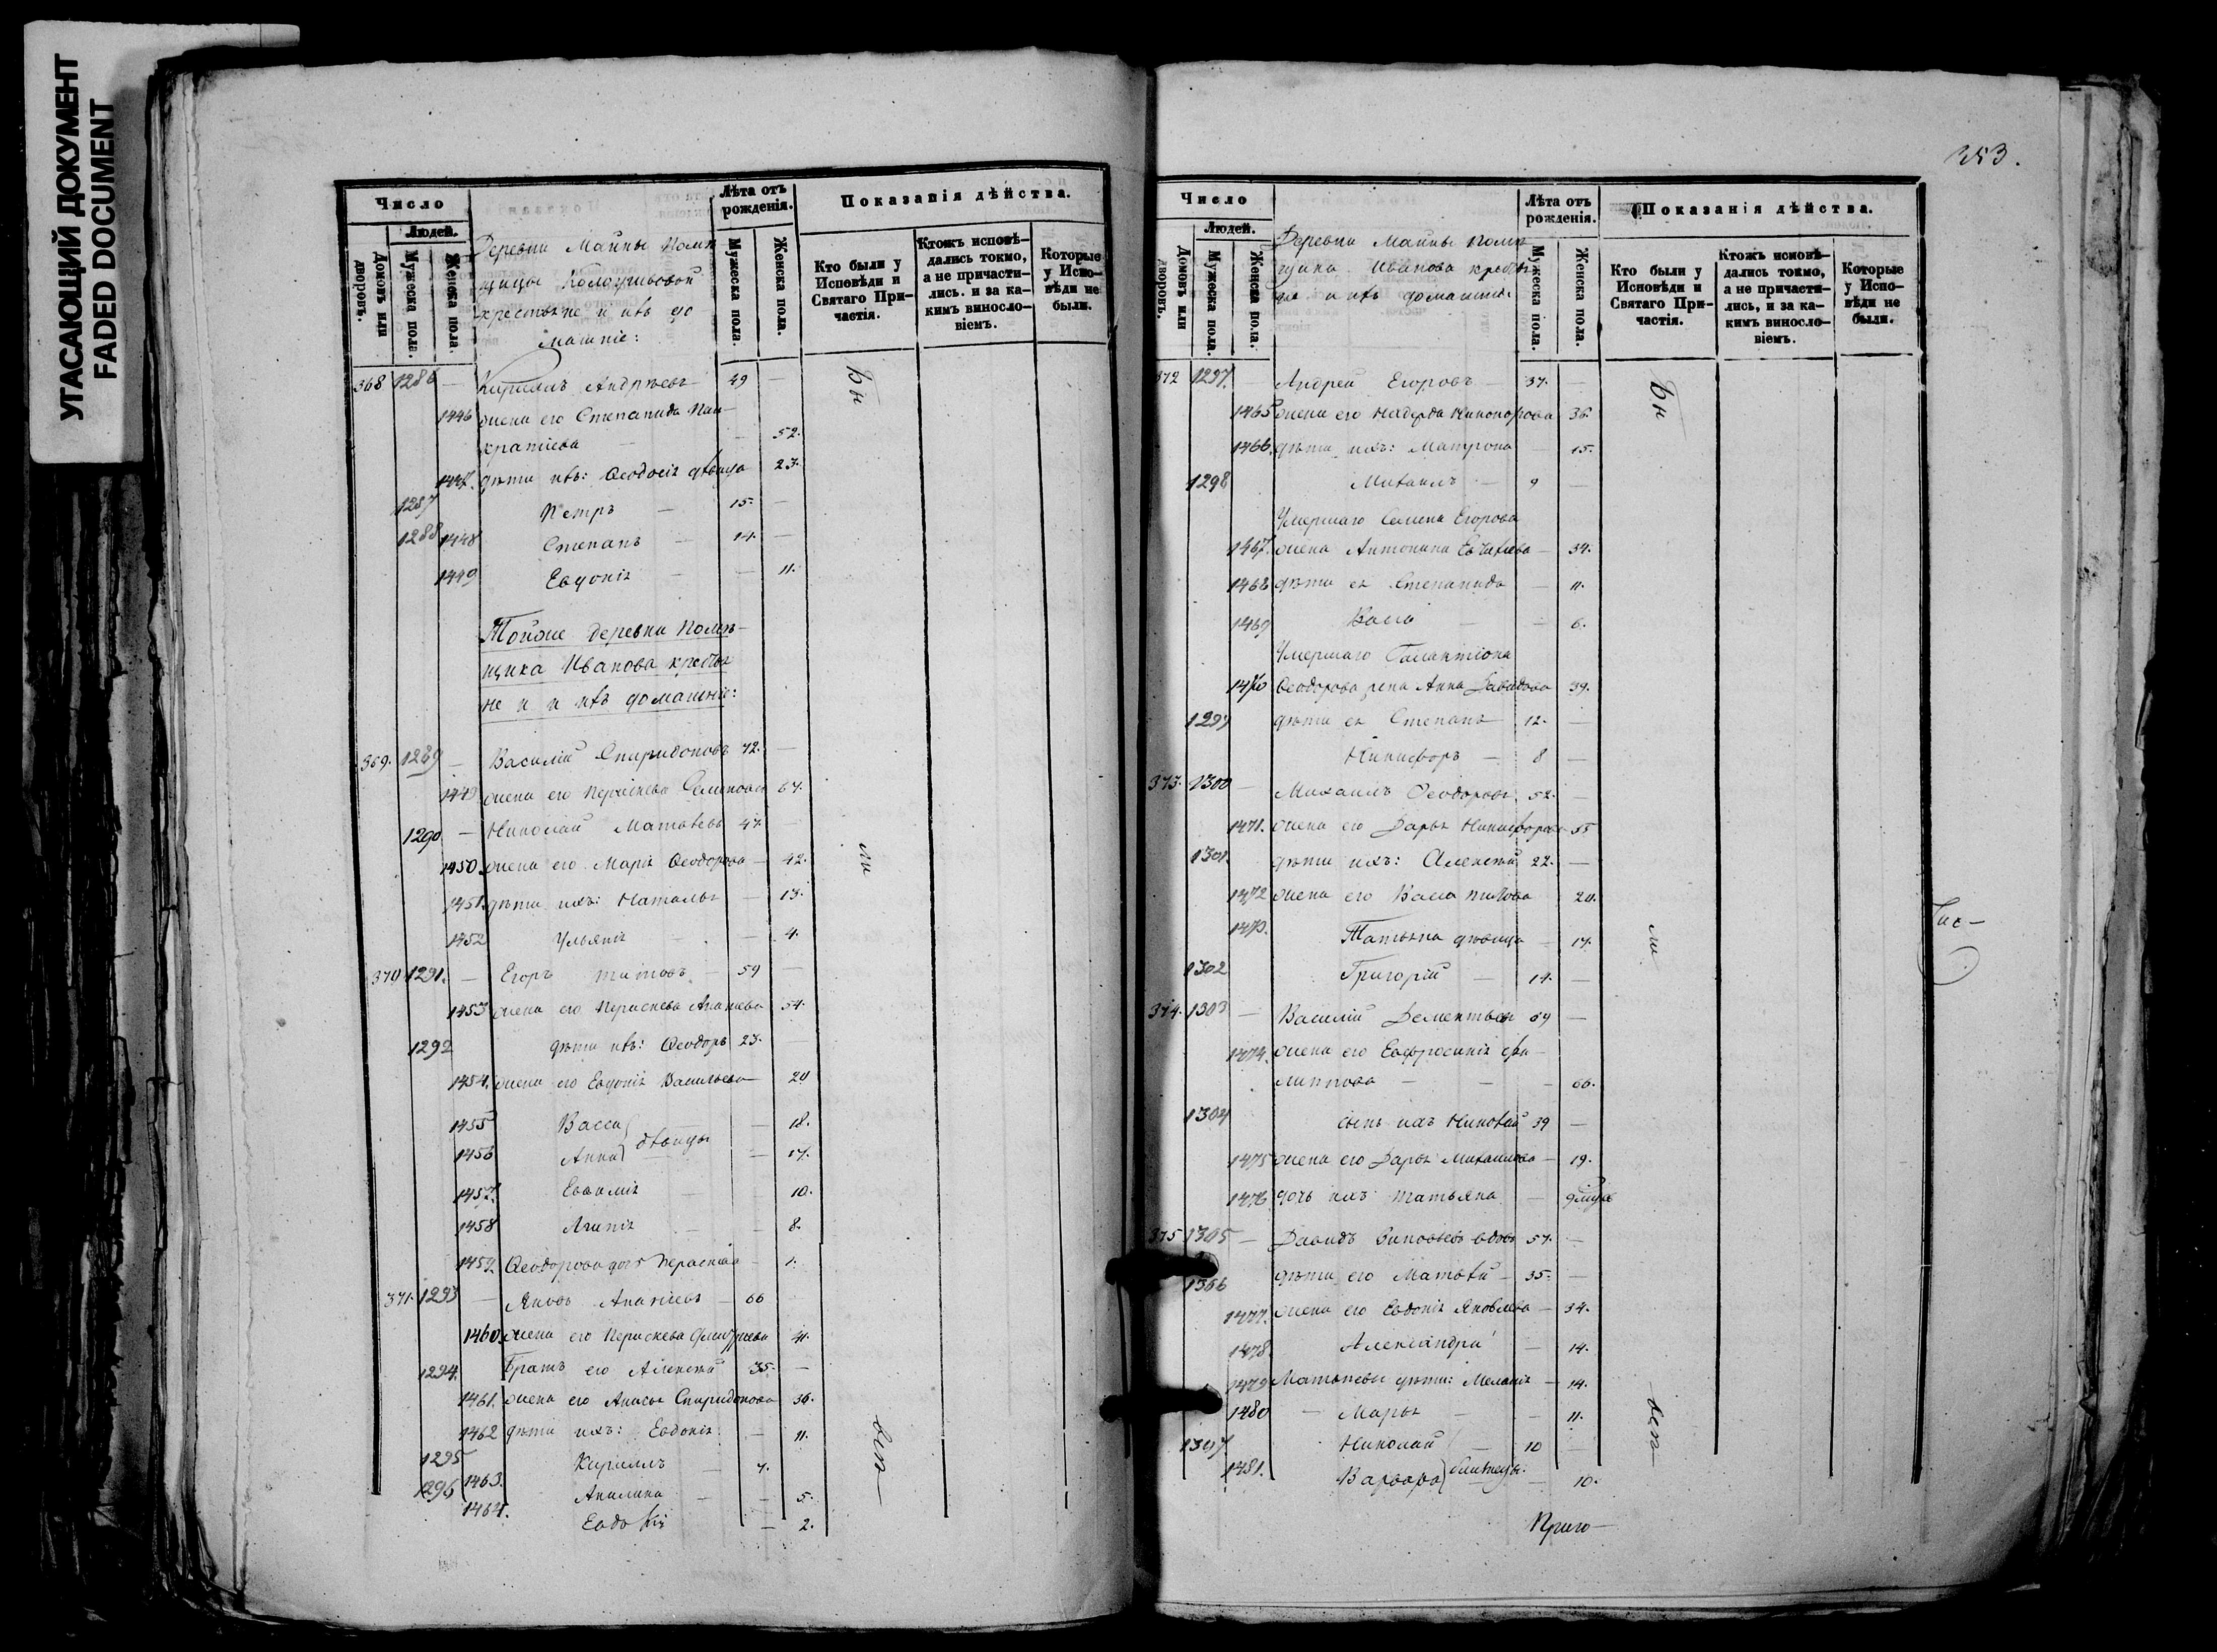 УГАСАЮЩИЙ ДОКУМЕНТ
FADED DOCUMENT
Число
Людей.
Домовъ или дворовъ.
Мужеска пола.
Женска пола.
Деревни Майны помѣ
щицы
крестьяне и ихъ до
машніе:
Лѣта отъ рожденія.
Мужеска пола.
Женска пола.
Показанія дѣйства.
Кто были у Исповѣди и Святаго Причастія.
Ктожъ исповѣ-
дались токмо,
а не причасти-
лись. и за ка-
кимъ винословіемъ.
Которые у Испо-
вѣди не были.
368 1286 — Кириллъ Андрѣевъ 49 —
1446 жена его Степанида Пан-
кратіева — — 52.
1447. дѣти ихъ: Ѳеодосія дѣвица 23.
1287 Петръ — 15. —
1288 1448 Степанъ — 14. —
1449 Евдокія — — 11.
Тойже деревни помѣ-
щика Иванова крестья
не и ихъ домашніе:
369. 1289 — Василій Спиридоновъ 72. —
1449 жена его Параскева Семенова 67.
1290 — Николай Матвѣевъ 47. —
1450. жена его Марія Ѳеодорова — 42.
1451. дѣти ихъ: Наталья — 13.
1452 Ульянія — — 4.
370 1291. — Егоръ Титовъ — 59 —
1453 жена его Параскева Ананіева 54.
1292 дѣти ихъ: Ѳеодоръ 23. —
1454. жена его Евдокія Васильева — 20
1455 Васса — 18.
1456 Анна } дѣвицы — 17.
1457. Евѳимія — — 10.
1458 Агапія — — 8.
1459 Ѳеодорова дочь Параскева — 1.
371. 1293 — Яковъ Ананіевъ — 66
1460. жена его Параскева Дмитріева 41.
1294. Братъ его Алексѣй 35. —
1461. жена его Анисья Спиридонова 36.
1462 дѣти ихъ: Евдокія — 11.
1295 Кириллъ — 7.
1296 1463. Акилина — — 5.
1464. Евдокія — 2.
бы
ли
всѣ
353.
Число
Людей.
Домовъ или дворовъ.
Мужеска пола.
Женска пола.
Деревни Майны помѣ
щика Иванова крестья
не и ихъ домашніе
Лѣта отъ рожденія.
Мужеска пола.
Женска пола.
Показанія дѣйства.
Кто были у Исповѣди и Святаго При-
частія.
Ктожъ исповѣ-
дались токмо,
а не причасти-
лись, и за ка-
кимъ винословіемъ.
Которые у Испо-
вѣди не были.
372 1297. — Андрей Егоровъ — 37. —
1465 жена его Надежда Никифорова 36.
1466. дѣти ихъ: Матрона — 15.
1298 Михаилъ — 9 —
Умершаго Семена Егорова
1467. жена Антонина — 34.
1468 дѣти ея Степанида — 11.
1469 Васса — — 6.
Умершаго Галактіона
1470 Ѳеодорова жена Анна Давидова 39.
1299 дѣти ея Степанъ 12. —
Никифоръ — 8 —
373. 1300 — Михаилъ Ѳеодоровъ 52. —
1471. жена его Дарья Никифорова 55
1301. дѣти ихъ: Алексѣй 22. —
1472 жена его Васса Титова 20.
1473. Татьяна дѣвица — 17.
1302 Григорій — 14. —
374. 1303 — Василій Дементьевъ 69 —
1474. жена его Евфросинія Фи-
липпова — — — 66.
1304 сынъ ихъ Николай 39 —
1475 жена его Дарья Михаилова — 19.
1476 дочь ихъ Татьяна —
375 1305 — Давидъ Зиновьевъ вдовъ 57. —
1306 дѣти его Матвѣй — 35. —
1477. жена его Евдокія Яковлева — 34.
1478. Александра — 14.
1479 Матвѣевы дѣти: Меланія — 14.
1480 — Марья — — 11.
1307 Николай — 10 —
1481. Варвара } близнецы — 10.
бы
ли
всѣ
Приго-